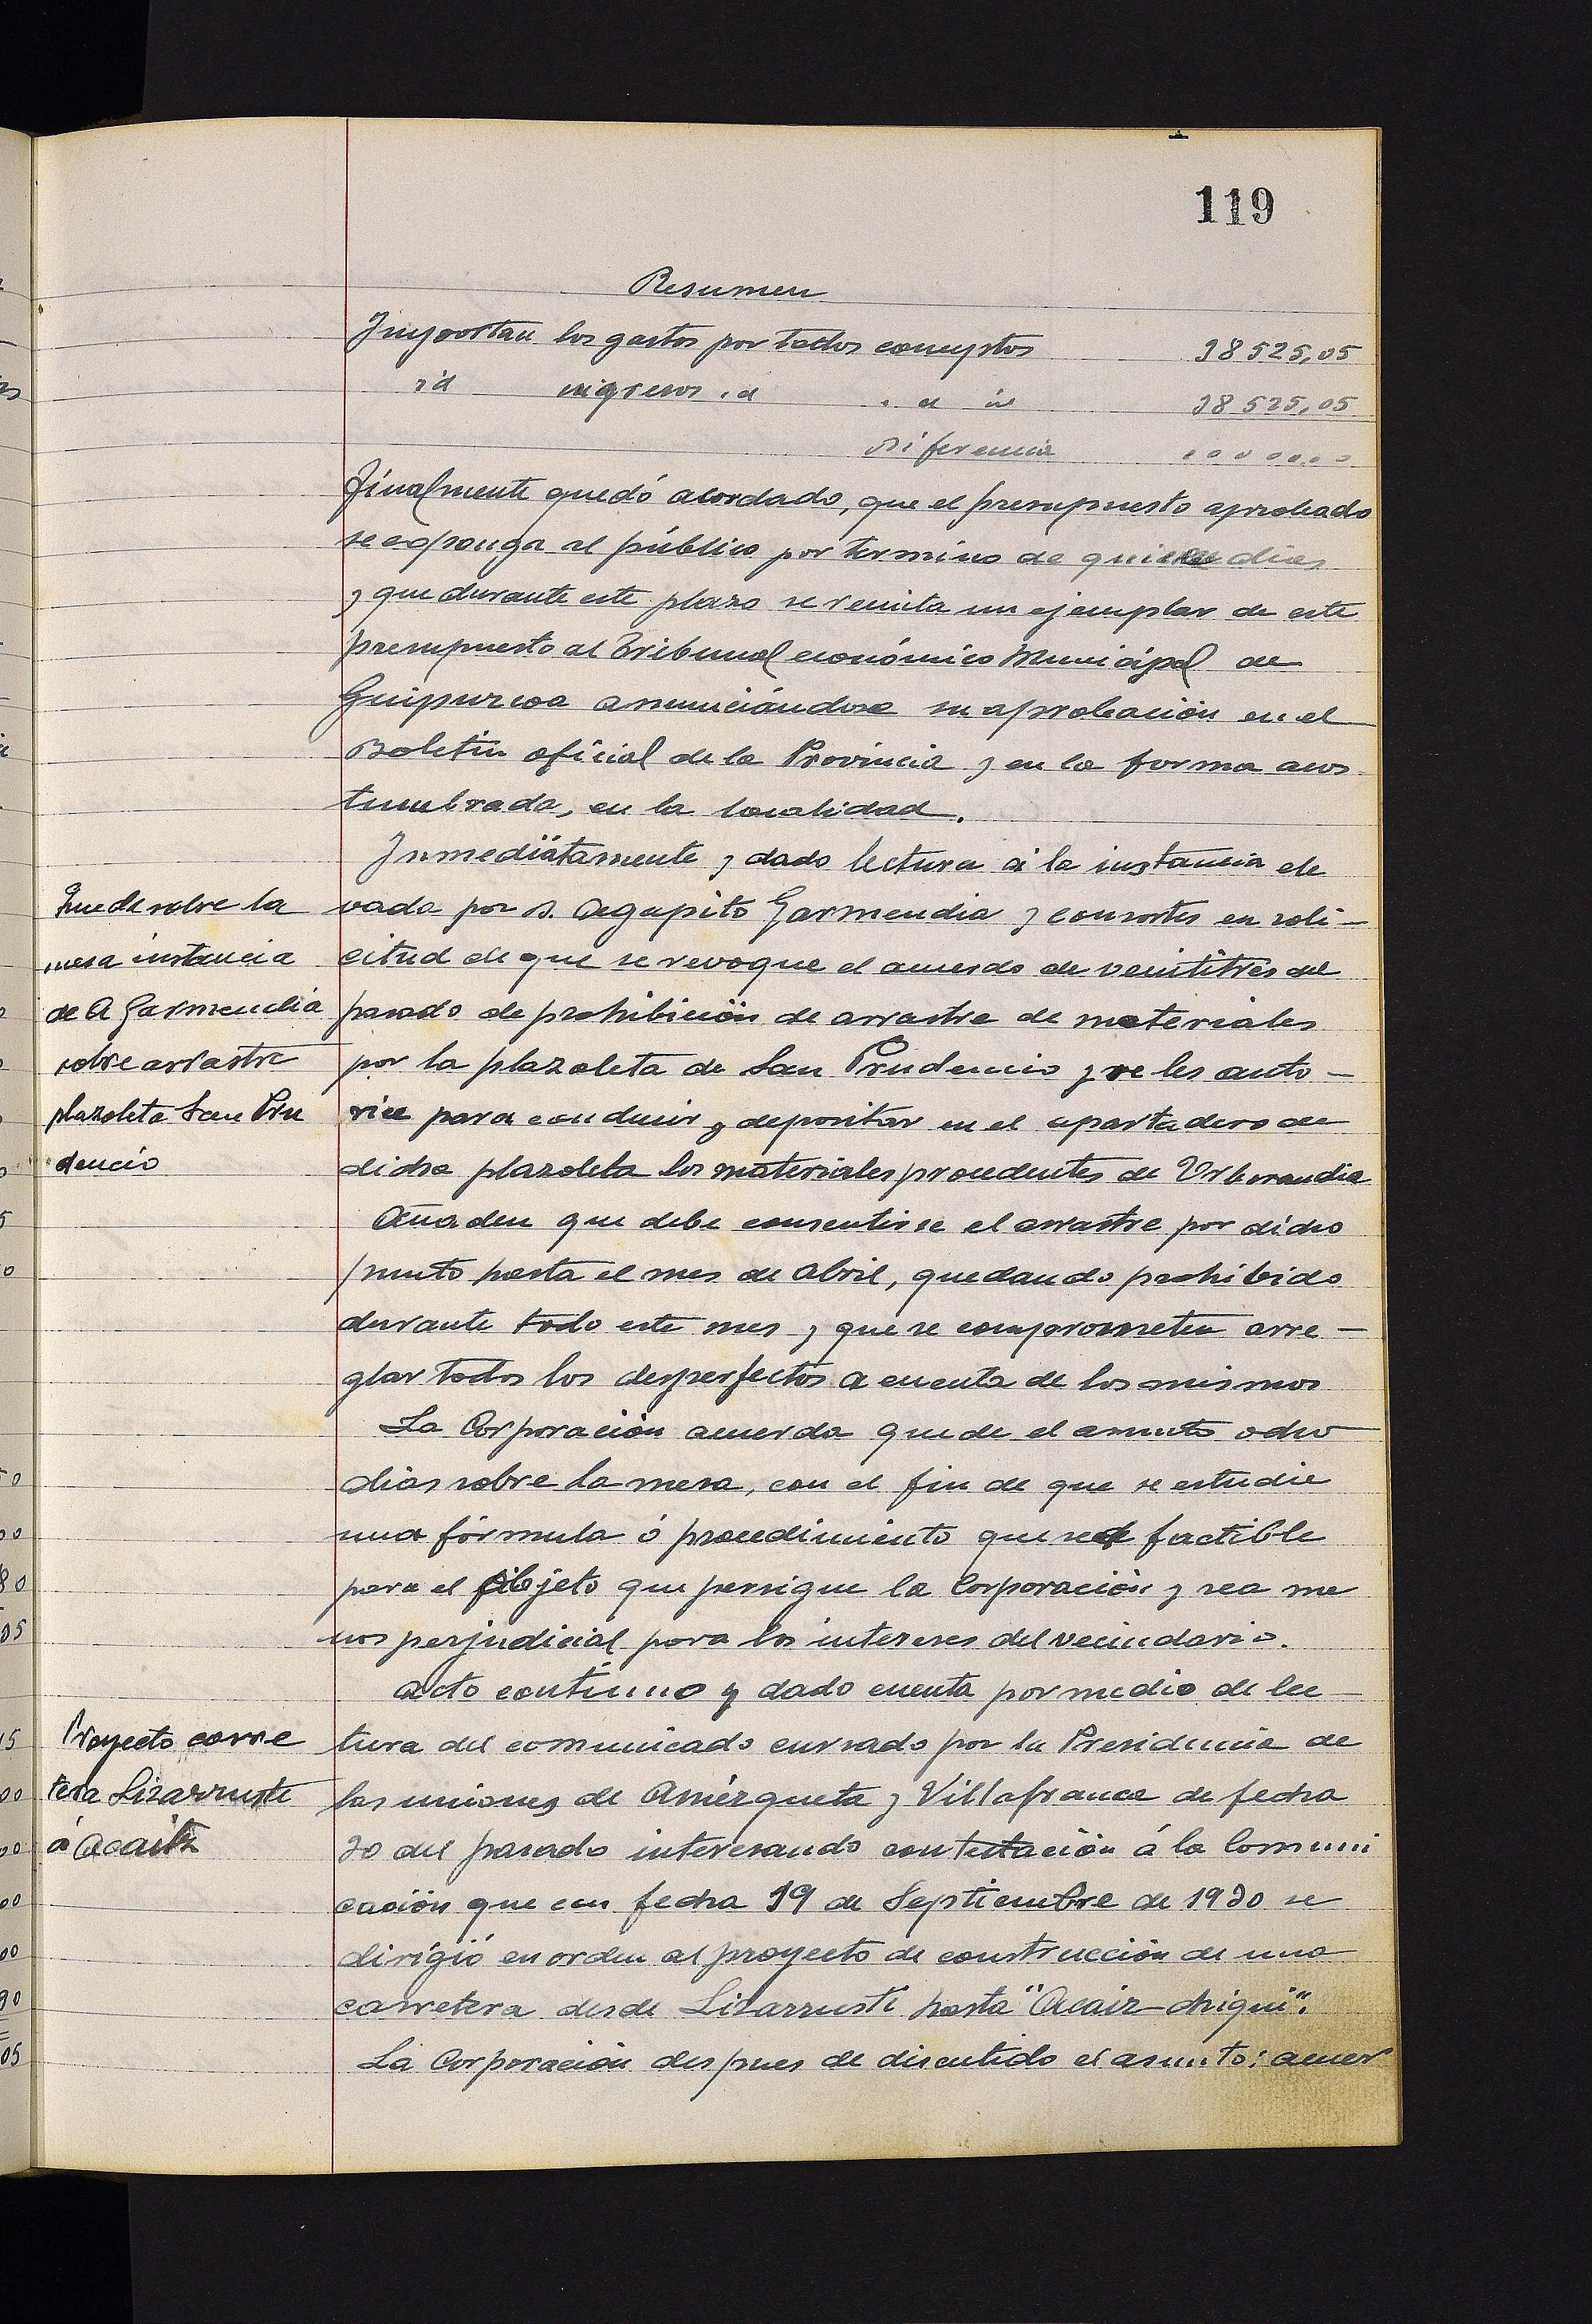 119
Resumen
Importan los gastos por todos conceptos 38525,05
id ingresos id id id 38525,05
Diferencia 0000000
Finalmente quedó acordado, que el presupuesto aprobado
se exponga al público por termino de quince dias
y que durante este plazo se remita un ejemplar de este
presupuesto al Tribunal económico Municipal de
Guipuzcoa anunciándose su aprobación en el
Boletin oficial de la Provincia y en la forma acos
tumbrada, en la localidad.
Inmediatamente y dado lectura á la instancia ele
Quede sobre la
mesa instancia
de A Garmendia
sobre arrastre
plazoleta San Pru
dencio
vada por D. Agapito Garmendia y consortes en soli-
citud de que se revoque el acuerdo de veintitres del
pasado de prohibición de arrastre de materiales
por la plazoleta de San Prudencio y se les auto-
rice para conducir y depositar en el apartadero de
dicha plazoleta los materiales procedentes de Urborandia
Añaden que debe consentirse el arrastre por dicho
punto hasta el mes de abril, quedando prohibido
durante todo este mes y que se comprometen arre-
glar todos los desperfectos a cuenta de los mismos
La Corporación acuerda quede el asunto ocho
dias sobre la mesa, con el fin de que se estudie
una fórmula ó procedimiento que sea factible
para el objeto que persigue la Corporación y sea me
nos perjudicial para los intereses del vecindario.
Acto continuo y dado cuenta por medio de lec-
Proyecto carre
tera Lizarruste
á Acaitz
tura del comunicado cursado por la Presidencia de
las uniones de Amézqueta y Villafranca de fecha
30 del pasado interesando contestación á la Comuni
cación que con fecha 19 de Septiembre de 1930 se
dirigió en orden al proyecto de construcción de una
carretera desde Lizarrusti hasta "Acaiz-chiqui".
La Corporación despues de discutido el asunto: acuer